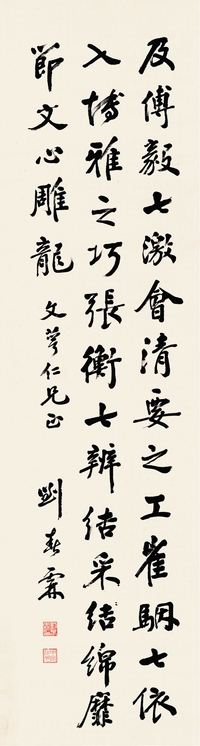 及傅毅七激會清要之工崔駰七依
入博雅之巧張衡七辨結采結綿靡
節文心雕龍
文萼仁兄正
劉春霖